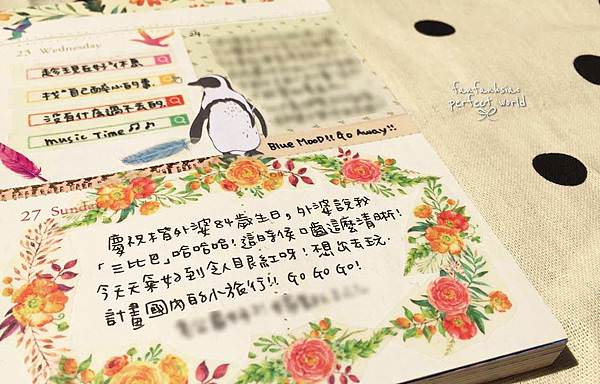 23 Wednesday
趁現在好好休息
找自己的事
沒有什麼過不去的
music Time♫♫
24
Blue Mood!! Go Away!!
fanfanhsiao
perfect world
27 Sunday
慶祝外婆84歲生日，外婆說我
「三比巴」哈哈哈！這時候口齒這麼清晰！
今天天氣好到令人眼紅呀！想出去玩.
計畫國內的小旅行!! Go Go Go!